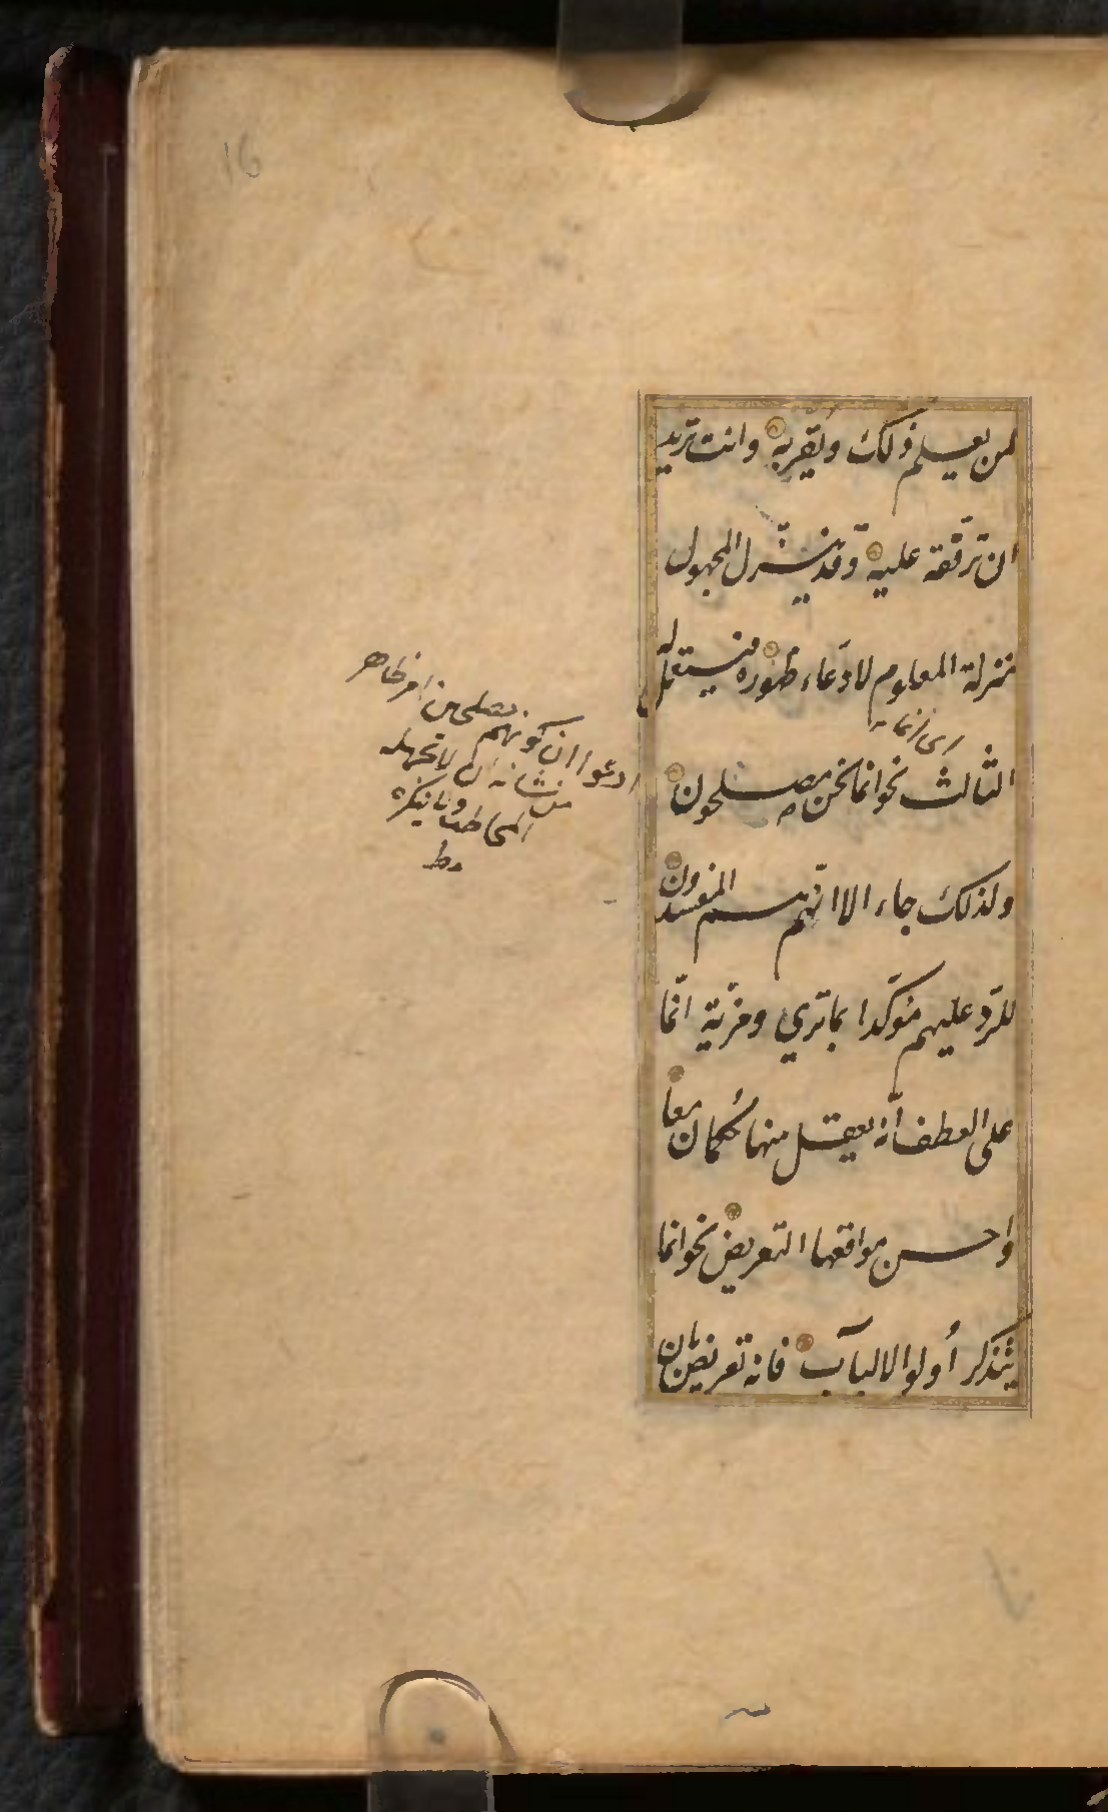 16
لمن يعلم ذلك ويقر به وانت تريد
ان ترققه عليه وقد ينزل المجهول
منزلة المعلوم لادعاء ظهوره فيستعمل له
اى انما
الثالث نحو انما نحن مصلحون
ولذلك جاء الا انهم هم المفسدون
للرد عليهم مؤكدا بما ترى ومزية انما
على العطف انه يعقل منها الحكمان معا
واحسن مواقعها التعريض نحو انما
يتذكر أولوا الالباب فانه تعريض بان
ادعوا ان كونهم مصلحين امر ظاهر
من شانه ان لا يجهله
المخاطب ولا ينكره
مط